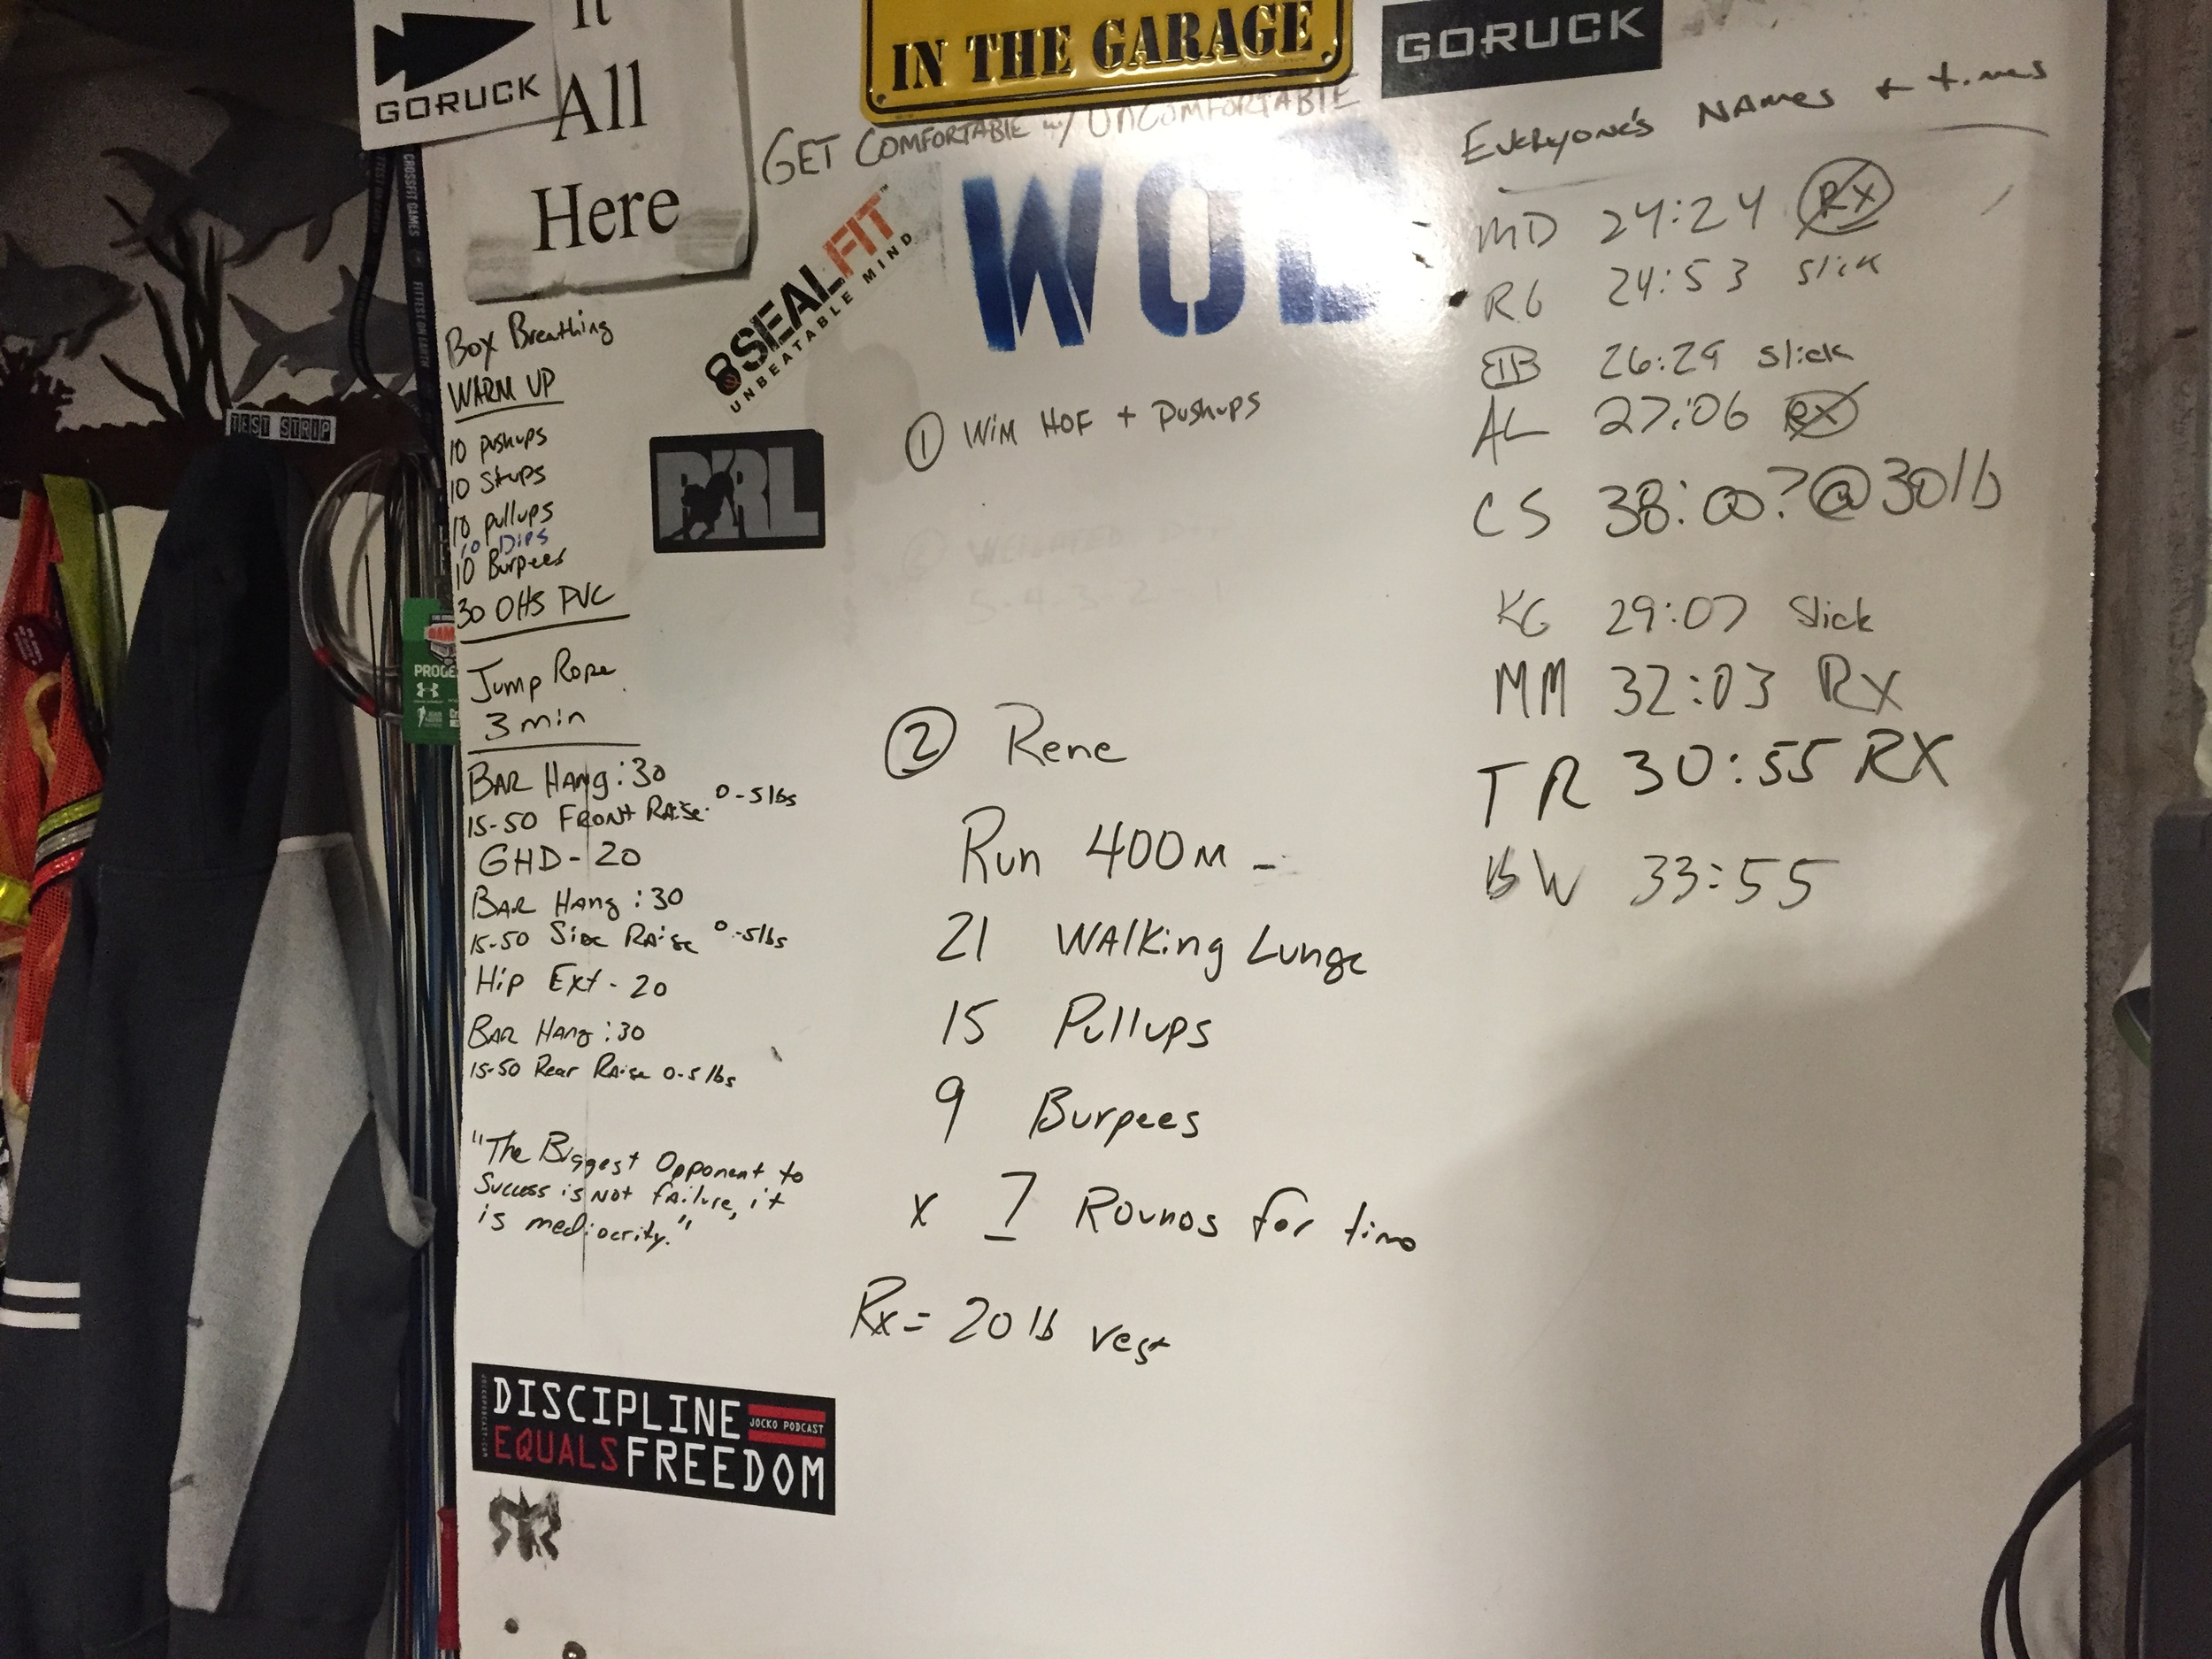 GORUCK
It
All
Here
IN THE GARAGE
GORUCK
GET COMFORTABLE w/ UNCOMFORTABLE
WOD
8 SEALFIT
UNBEATABLE MIND
CROSSFIT GAMES
FITTEST ON EARTH
TEST STRIP
Box Breathing
WARM UP
10 pushups
10 Situps
10 pullups
10 Dips
10 Burpees
30 OHS PVC
Jump Rope
3 min
BAR HANg :30
15-50 FRONT RAise 0-5lbs
GHD - 20
BAR HANg :30
15-50 Side RAise 0-5lbs
Hip Ext - 20
BAR HANg :30
15-50 Rear RAise 0-5 lbs
"The Biggest Opponent to
Success is NOT failure, it
is mediocrity."
DISCIPLINE
EQUALS FREEDOM
JOCKO PODCAST
① WIM HOF + Pushups
② Rene
Run 400m -
21 WAlking Lunge
15 Pullups
9 Burpees
x 7 Rounds for time
Rx = 20 lb vest
Everyone's NAmes + times
MD 24:24 RX
RG 24:53 slick
BB 26:29 slick
AL 27:06 RX
CS 38:00? @ 30lb
KG 29:07 Slick
MM 32:03 RX
TR 30:55 RX
BW 33:55